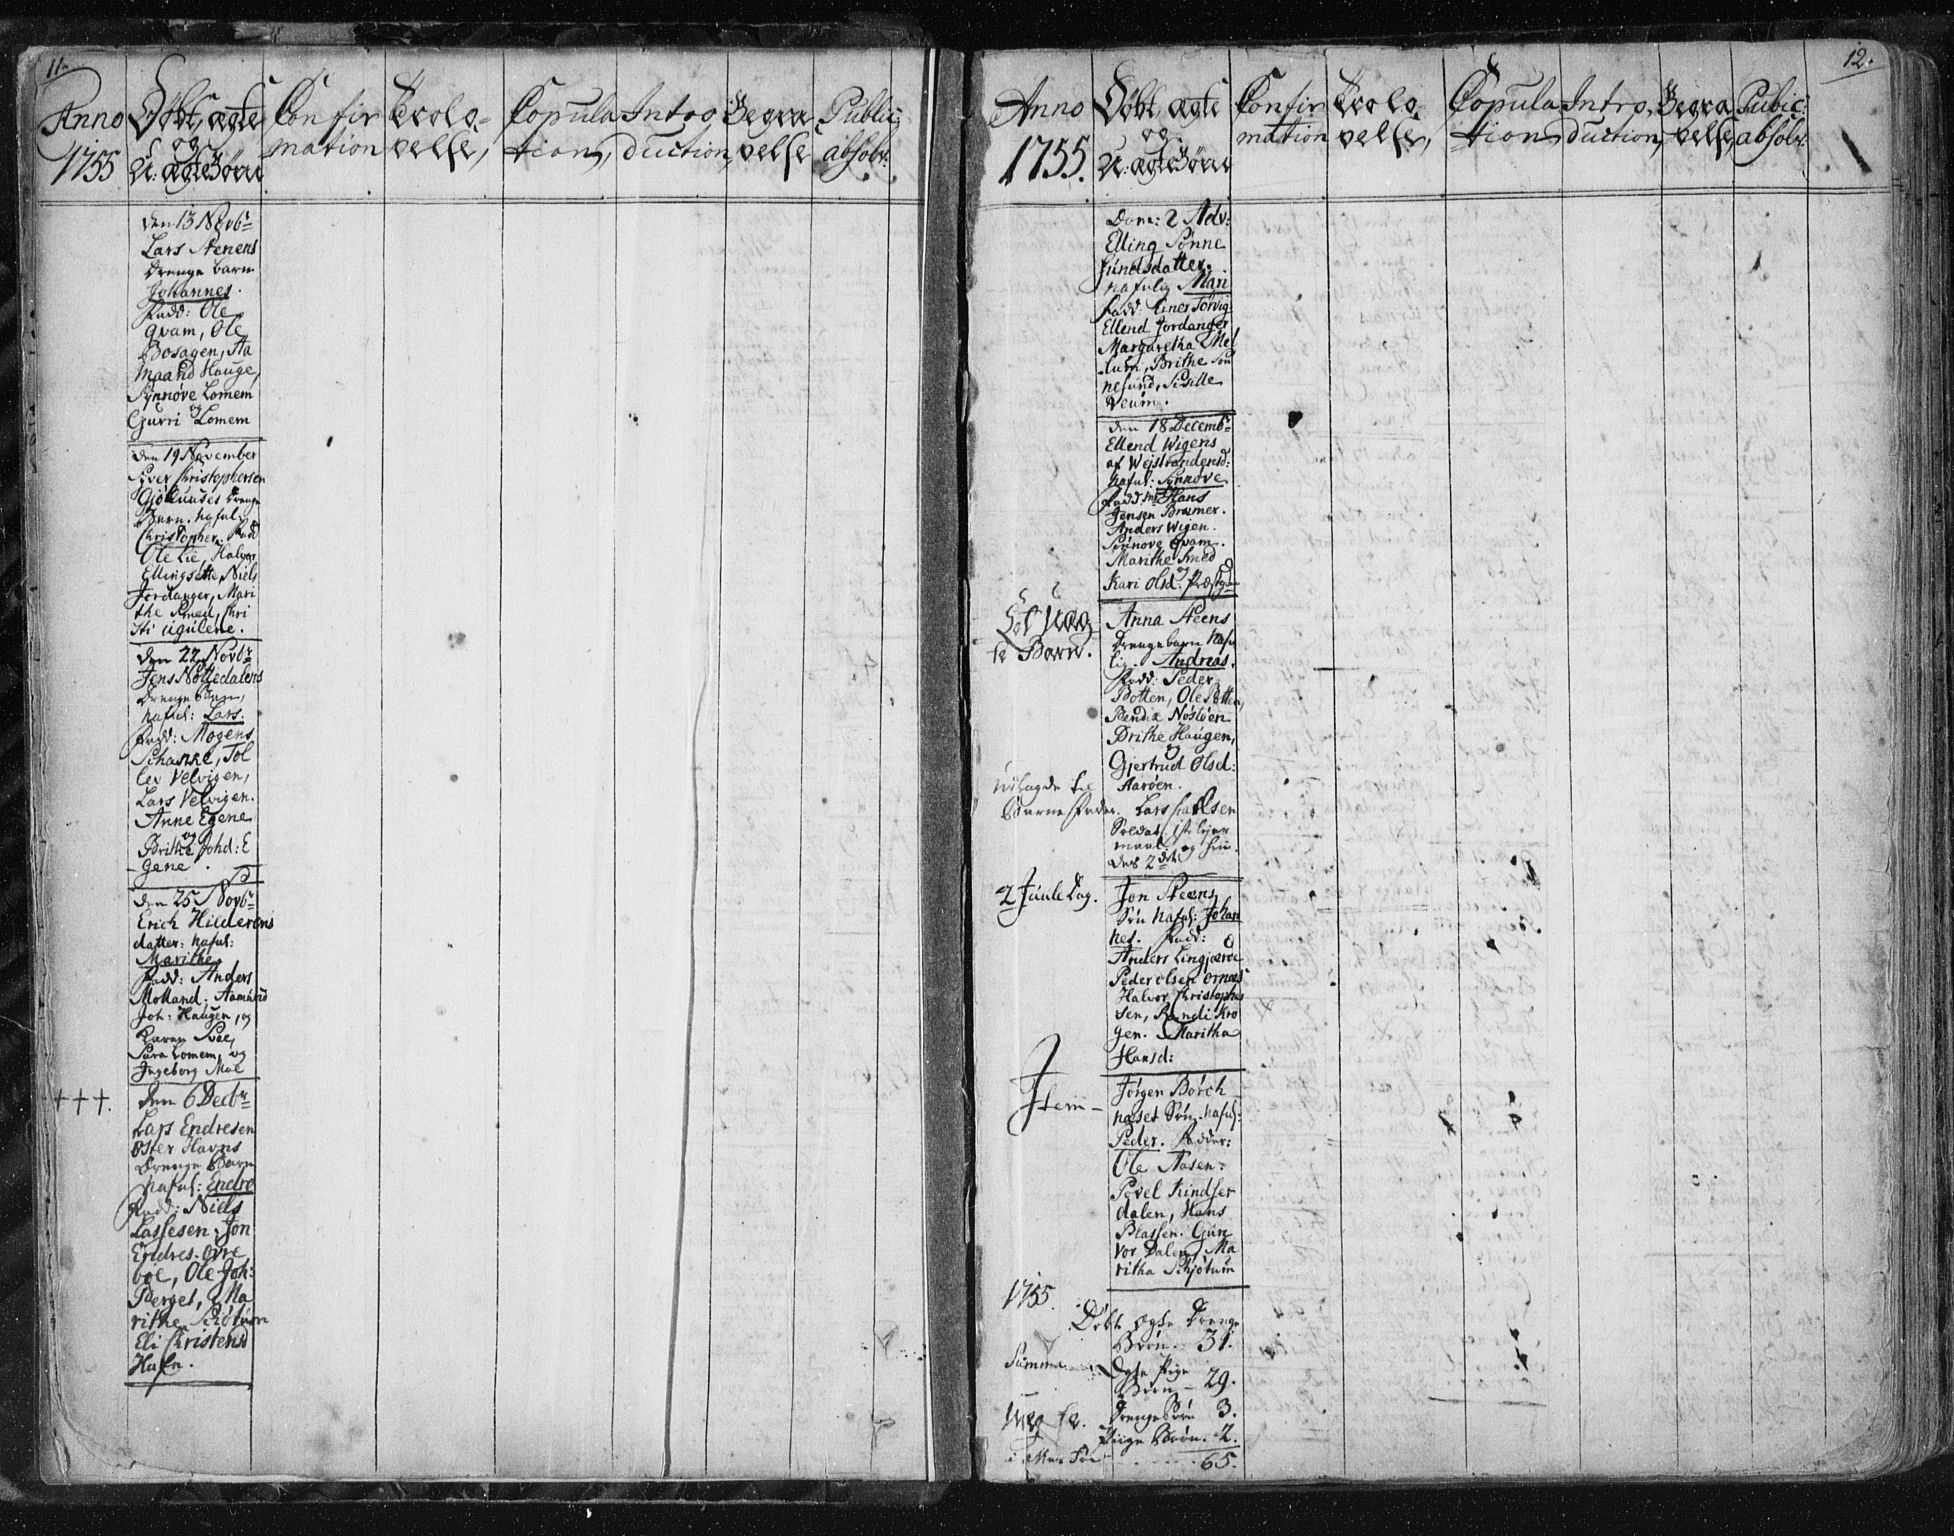 11.
Anno
1755
Døbt, ægte
og
U: ægte Børn
Confir
mation
Trolo-
velse,
Copula
tion,
Intro
duction,
Begra
velse
Public:
absolv:
den 13 Novbr
Lars Stenens
Drenge barn
Johannes.
Fadd: Ole
Qvam, Ole
Bosagen, Aa
maand Hauge,
Synnøve Lomem
og
Gurri Lomem
den 19 November
Siver Christophersen
Drenge
Barn. nafnl:
Christopher. Fadd
Ole Lie, Halvor
Ellingsætte, Niels
Jordanger, Mari
the Smed, Chri
sti Ugulene.
den 22 Novbr
Jens Nottedalens
Drenge Barn,
nafnl: Lars.
Fadd: Mogens
Schanke, Tol
lev Velvigen,
Lars Velvigen.
Anne Egene
og
Brithe Johd: E
gene.
den 25 Novbr
Erich Hillerens
datter: nafnl:
Marithe.
Fadd: Anders
Molland. Aamund
Joh: Haugen, og
Karen Svae,
Sara Lomem, og
Ingeborg Moe
+++.
den 6 Decbr
Lars Endresen
Øster Havns
Drenge Barn
nafnl: Endre
Fadd: Niels
Lassesen, Jon
Endres. Øvre
boe, Ole Joh:
Berget, Ma
rithe Schøtum
Eli Christensd
Hafn.
12.
Anno
1755.
Døbt, ægte
og
U: ægte Børn
Confir
mation
Trolo-
velse,
Copula
tion,
Intro
duction,
Begra
velse,
Public:
absolv:
Dom: 2 Adv:
Elling Sønne
sunds datter.
nafnlig Mari
Fadd: Einer Torvig
Ellend Jordanger
Margaretha Mel
lum, Brithe Søn
nesund, Sidselle
Veum.
den 18 Decembr
Ellend Wigens
af Wejstrandens d:
nafnl: Synnøve
Fadd mr Hans
Jensen Bræmer.
Anders Wigen.
Synnøve Qvam.
Marithe Smed
og
Kari Olsd:
Et Uæg
te Barn.
Anna Steens
Drengebarn nafn
lig. Andreas.
Fadd: Peder
Botten, Ole Botten,
Bendix Nøstøen
Brithe Haugen,
og
Gjertrud Olsd:
Aarøen.
udlagde til
Barne Fader. Lars
Soldat, 1ste lejer
maal og hen
des 2det
2 Juule dag.
Jon Steens
Søn nafnl: Johan
nes. Fadd:
Anders Lingjærde
Peder Olsen Ornæs
Halvor Christophes
sen, Randi Kro
gen. Maritha
Hansd:
Item-
Jørgen Børch
næset Søn. nafnl:
Peder. Fadder:
Ole Aasen.
Povel Kindser
dalen, Hans
Blassen. Gun
vor Dalen, Ma
ritha Schjøtum
1755.
Døbt ægte Drenge
Børn. 31.
Summa
Ægte Pige
Børn - 29.
Uæg te.
Drenge Børn 3.
Piige Børn. 2.
65.